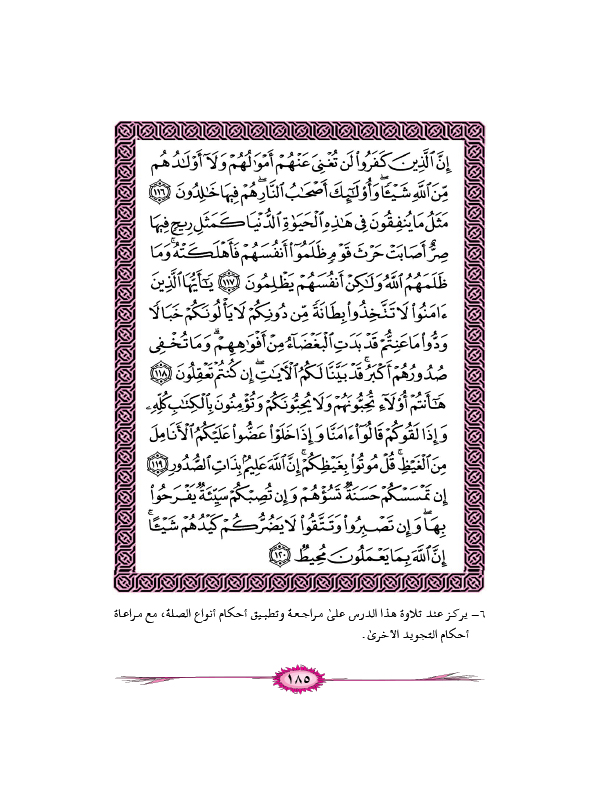 إِنَّ ٱلَّذِينَ كَفَرُوا۟ لَن تُغْنِىَ عَنْهُمْ أَمْوَٰلُهُمْ وَلَآ أَوْلَـٰدُهُم
مِّنَ ٱللَّهِ شَيْـًٔا ۖ وَأُو۟لَـٰٓئِكَ أَصْحَـٰبُ ٱلنَّارِ ۖ هُمْ فِيهَا خَـٰلِدُونَ ١١٦
مَثَلُ مَا يُنفِقُونَ فِى هَـٰذِهِ ٱلْحَيَوٰةِ ٱلدُّنْيَا كَمَثَلِ رِيحٍ فِيهَا
صِرٌّ أَصَابَتْ حَرْثَ قَوْمٍ ظَلَمُوٓا۟ أَنفُسَهُمْ فَأَهْلَكَتْهُ ۚ وَمَا
ظَلَمَهُمُ ٱللَّهُ وَلَـٰكِنْ أَنفُسَهُمْ يَظْلِمُونَ ١١٧ يَـٰٓأَيُّهَا ٱلَّذِينَ
ءَامَنُوا۟ لَا تَتَّخِذُوا۟ بِطَانَةً مِّن دُونِكُمْ لَا يَأْلُونَكُمْ خَبَالًا
وَدُّوا۟ مَا عَنِتُّمْ قَدْ بَدَتِ ٱلْبَغْضَآءُ مِنْ أَفْوَٰهِهِمْ ۚ وَمَا تُخْفِى
صُدُورُهُمْ أَكْبَرُ ۚ قَدْ بَيَّنَّا لَكُمُ ٱلْـَٔايَـٰتِ ۖ إِن كُنتُمْ تَعْقِلُونَ ١١٨
هَـٰٓأَنتُمْ أُو۟لَآءِ تُحِبُّونَهُمْ وَلَا يُحِبُّونَكُمْ وَتُؤْمِنُونَ بِٱلْكِتَـٰبِ كُلِّهِۦ
وَإِذَا لَقُوكُمْ قَالُوٓا۟ ءَامَنَّا وَإِذَا خَلَوْا۟ عَضُّوا۟ عَلَيْكُمُ ٱلْأَنَامِلَ
مِنَ ٱلْغَيْظِ ۚ قُلْ مُوتُوا۟ بِغَيْظِكُمْ ۗ إِنَّ ٱللَّهَ عَلِيمٌۢ بِذَاتِ ٱلصُّدُورِ ١١٩
إِن تَمْسَسْكُمْ حَسَنَةٌ تَسُؤْهُمْ وَإِن تُصِبْكُمْ سَيِّئَةٌ يَفْرَحُوا۟
بِهَا ۖ وَإِن تَصْبِرُوا۟ وَتَتَّقُوا۟ لَا يَضُرُّكُمْ كَيْدُهُمْ شَيْـًٔا ۗ
إِنَّ ٱللَّهَ بِمَا يَعْمَلُونَ مُحِيطٌ ١٢٠
٦- يركز عند تلاوة هذا الدرس على مراجعة وتطبيق أحكام أنواع الصلة، مع مراعاة
أحكام التجويد الأخرى.
١٨٥